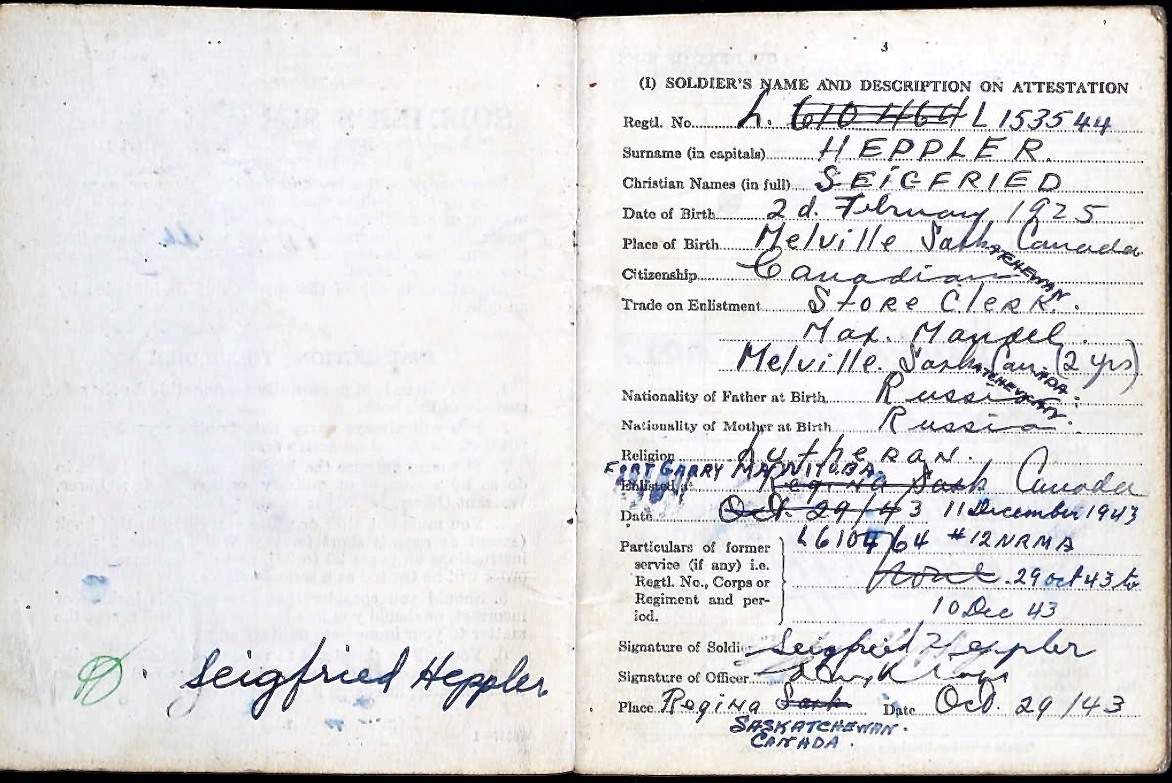 Seigfried Heppler
3
(I) SOLDIER'S NAME AND DESCRIPTION ON ATTESTATION
Regtl. No. L. 610464 L 153544
Surname (in capitals) HEPPLER.
Christian Names (in full) SEIGFRIED
Date of Birth 2d. February 1925
Place of Birth Melville Sask Canada
ATCHEWAN
Citizenship Canadian
Trade on Enlistment Store Clerk.
Max. Mandel.
Melville. Sask Can (2 yrs)
ATCHEWAN. ADA
Nationality of Father at Birth Russia.
Nationality of Mother at Birth Russia.
Religion Lutheran.
FORT GARRY MANITOBA.
Enlisted at Regina Sask Canada
Date Oct 29/43 11 December 1943
Particulars of former L610464 #12 NRMA
service (if any) i.e.
Regtl. No., Corps or None. 29 Oct 43 to
Regiment and per- 10 Dec 43
iod.
Signature of Soldier Seigfried Heppler
Signature of Officer
Place Regina Sask Date Oct. 29/43
SASKATCHEWAN.
CANADA.